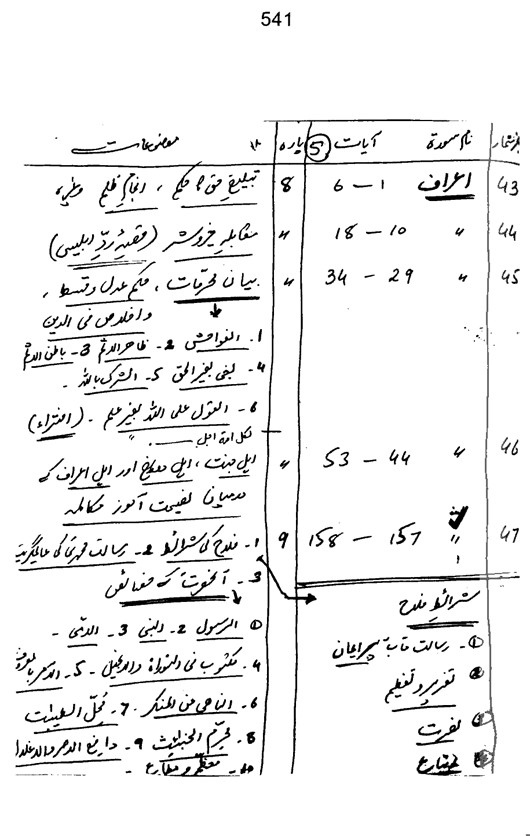 541
نمبر شمار نام سورۃ آیات 5 پارہ موضوعات
43 اعراف 1 – 6 8 تبلیغِ حق کا حکم، انجامِ ظلم
44 〃 10 – 18 〃 مقابلہ خیر و شر (قصۂ ردِّ ابلیس)
45 〃 29 – 34 〃 بیان محرمات، حکم عدل و قسط،
و اخلاص فی الدین
1۔ الفواحش 2۔ ظاھر الاثم 3۔ باطن الاثم
4۔ بغی بغیر الحق 5۔ الشرک باللہ ۔
6۔ القول علی اللہ بغیر علم ۔ (افتراء)
لکل امۃ اجل
46 〃 44 – 53 〃 اہل جنت، اہل دوزخ اور اہل اعراف کے
درمیان نصیحت آموز مکالمہ
47 〃 157 – 158 9 1۔ فلاح کی شرائط 2۔ رسالت محمدی کی عالمگیریت
3۔ آنحضرت کے خصائص
① الرسول 2۔ النبی 3۔ الامی ۔
4۔ مکتوب فی التوراۃ والانجیل ۔ 5۔ الآمر بالمعروف
6۔ الناھی عن المنکر ۔ 7۔ مُحِلّ الطیبات
8۔ محرِّم الخبائث 9۔ واضع الاصر والاغلال
10۔ معظَّم و مطاع
شرائطِ فلاح
① ۔ رسالت مآب پر ایمان
② تعزیر و تعظیم
③ نصرت
④ اتباع